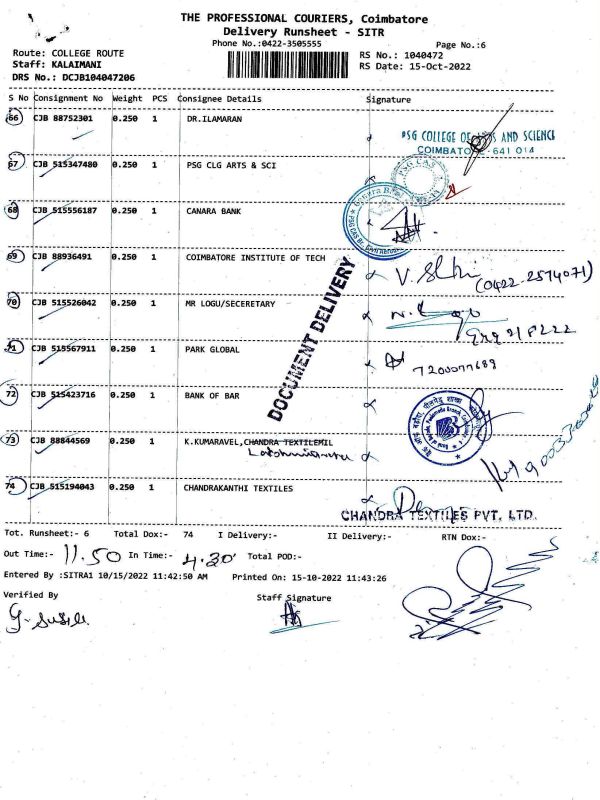 THE PROFESSIONAL COURIERS, Coimbatore
Delivery Runsheet - SITR
Phone No.:0422-3505555
Page No.:6
Route: COLLEGE ROUTE
RS No.: 1040472
Staff: KALAIMANI
RS Date: 15-Oct-2022
DRS No.: DCJB104047206
S No Consignment No Weight PCS Consignee Details Signature
66 CJB 88752301 0.250 1 DR.ILAMARAN
PSG COLLEGE OF ARTS AND SCIENCE
COIMBATORE 641 014
67 CJB 515347480 0.250 1 PSG CLG ARTS & SCI
PSG CAS
68 CJB 515556187 0.250 1 CANARA BANK
69 CJB 88936491 0.250 1 COIMBATORE INSTITUTE OF TECH
(0422-2574071)
DOCUMENT DELIVERY
70 CJB 515526042 0.250 1 MR LOGU/SECERETARY
71 CJB 515567911 0.250 1 PARK GLOBAL
72 CJB 515423716 0.250 1 BANK OF BAR
73 CJB 88844569 0.250 1 K.KUMARAVEL,CHANDRA TEXTILEMIL
74 CJB 515194043 0.250 1 CHANDRAKANTHI TEXTILES
CHANDRA TEXTILES PVT. LTD.
Tot. Runsheet:- 6 Total Dox:- 74 I Delivery:- II Delivery:- RTN Dox:-
Out Time:- 11.50 In Time:- 4.30 Total POD:-
Entered By :SITRA1 10/15/2022 11:42:50 AM Printed On: 15-10-2022 11:43:26
Verified By Staff Signature